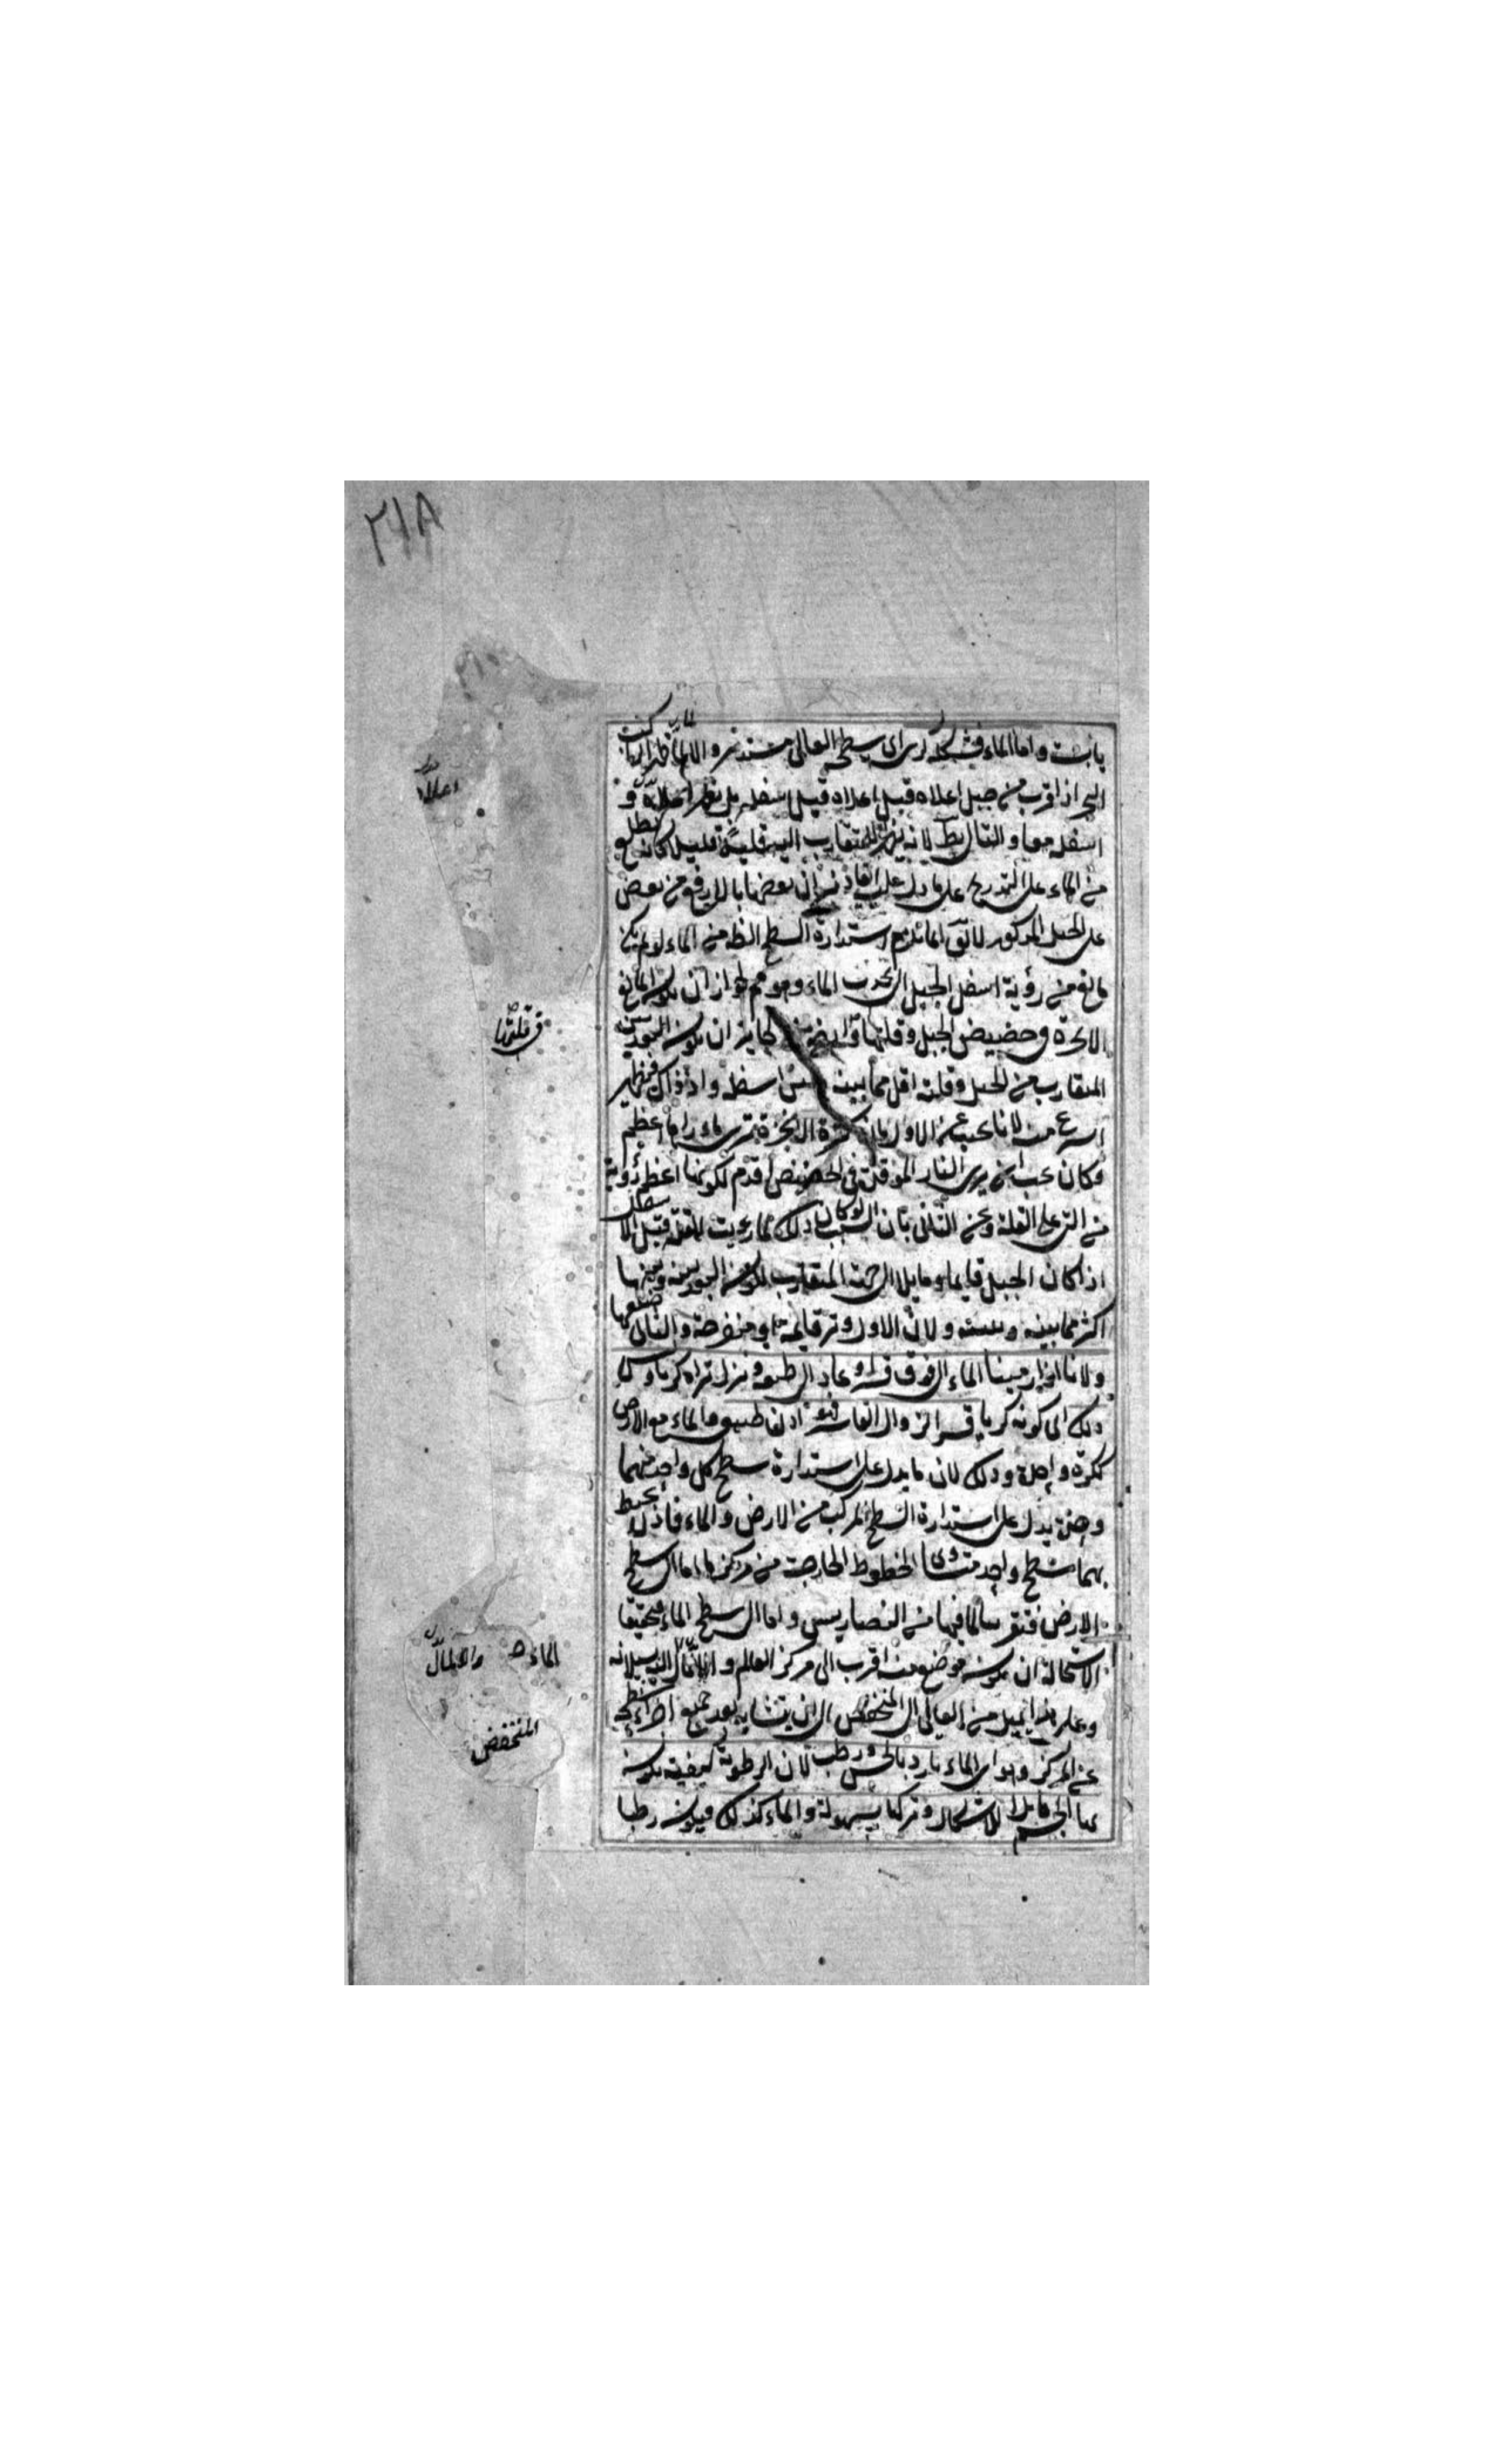 ٢٤٨
يابسة واما الماء فشكله كرى اى سطحه العالى مستدير والا لما ظهر لراكب
البحر اذا قرب من جبل اعلاه قبل اسفله بل ظهر اعلاه و
اسفله معا والتالى بط لانه يظهر للمتقارب اليه قليلا قليلا كانه يطلع
من الماء على التدريج على ما دل عليه ايقاد نيران بعضها بالا رفع من بعض
على الجبل المذكور لا يق انما يلزم استدارة السطح الظ من الماء لو لم يكن
مانع من رؤية اسفل الجبل الا تحدب الماء وهو مم لجواز ان يكون المانع
الابخرة فى حضيض الجبل وقلتها من الجايز ان يكون البعد بين
المتقارب من الجبل وقلته اقل مما بينه وبين اسفله واذ ذاك فيظهر
اسرع منه لانا نجيب عن الاول بان كثرة الابخرة ترى ما وراها اعظم
وكان يجب ان يرى النار الموقدة فى الحضيض اقدم لكونها اعظم رؤية
من التى على القلة وعن الثانى بان السبب لو كان ذلك لما رؤيت القلة قبل الاسفل
اذا كان الجبل قايما او مايلا الى جهة المتقارب لكون البعد بينه وبينها
اكثر مما بينه وبينه ولان الاول وتر قايمة او منفرجة والثانى ضلعها
ولانا اذا رمينا الماء الى فوق قسرا وعاد الى طبعه ونزل تراه كريا وليس
ذلك اى كونه كريا قسرا لزوال القاسر فهو اذن طبيعى والماء مع الارض
ككرة واحدة وذلك لان ما يدل على استدارة سطح كل واحد منهما
وحده يدل على استدارة السطح المركب من الارض والماء فاذن يحيط
بهما سطح واحد متساوى الخطوط الخارجة من مركزه اما سطح
الارض فتقريبا لما فيها من التضاريس واما سطح الماء فتحقيقا
لاستحالة ان يكون موضع منه اقرب الى مركز العالم والا لمال اليه لسيلانه
وعلى هذا يميل من العالى الى المنخفض الى ان يتشابه بعد جميع اجزاء سطحه
عن المركز وهو اى الماء بارد بالحس ورطب لان الرطوبة كيفية يكون
بها الجسم قابلا للاشكال وتركها بسهولة والماء كذلك فيكون رطبا
اعلاه
فى قلتها
الماء والا لمال
المنخفض